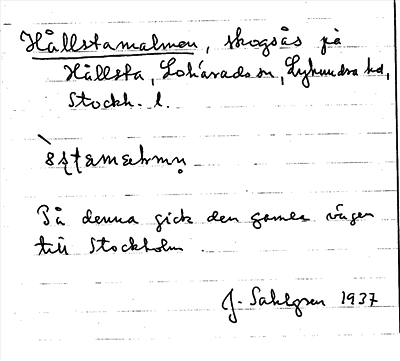 Hållstamalmen, skogsås på
Hållsta, Lohärads sn, Lyhundra hd,
Stockh. l.
På denna gick den gamla vägen
till Stockholm.
J. Sahlgren 1937